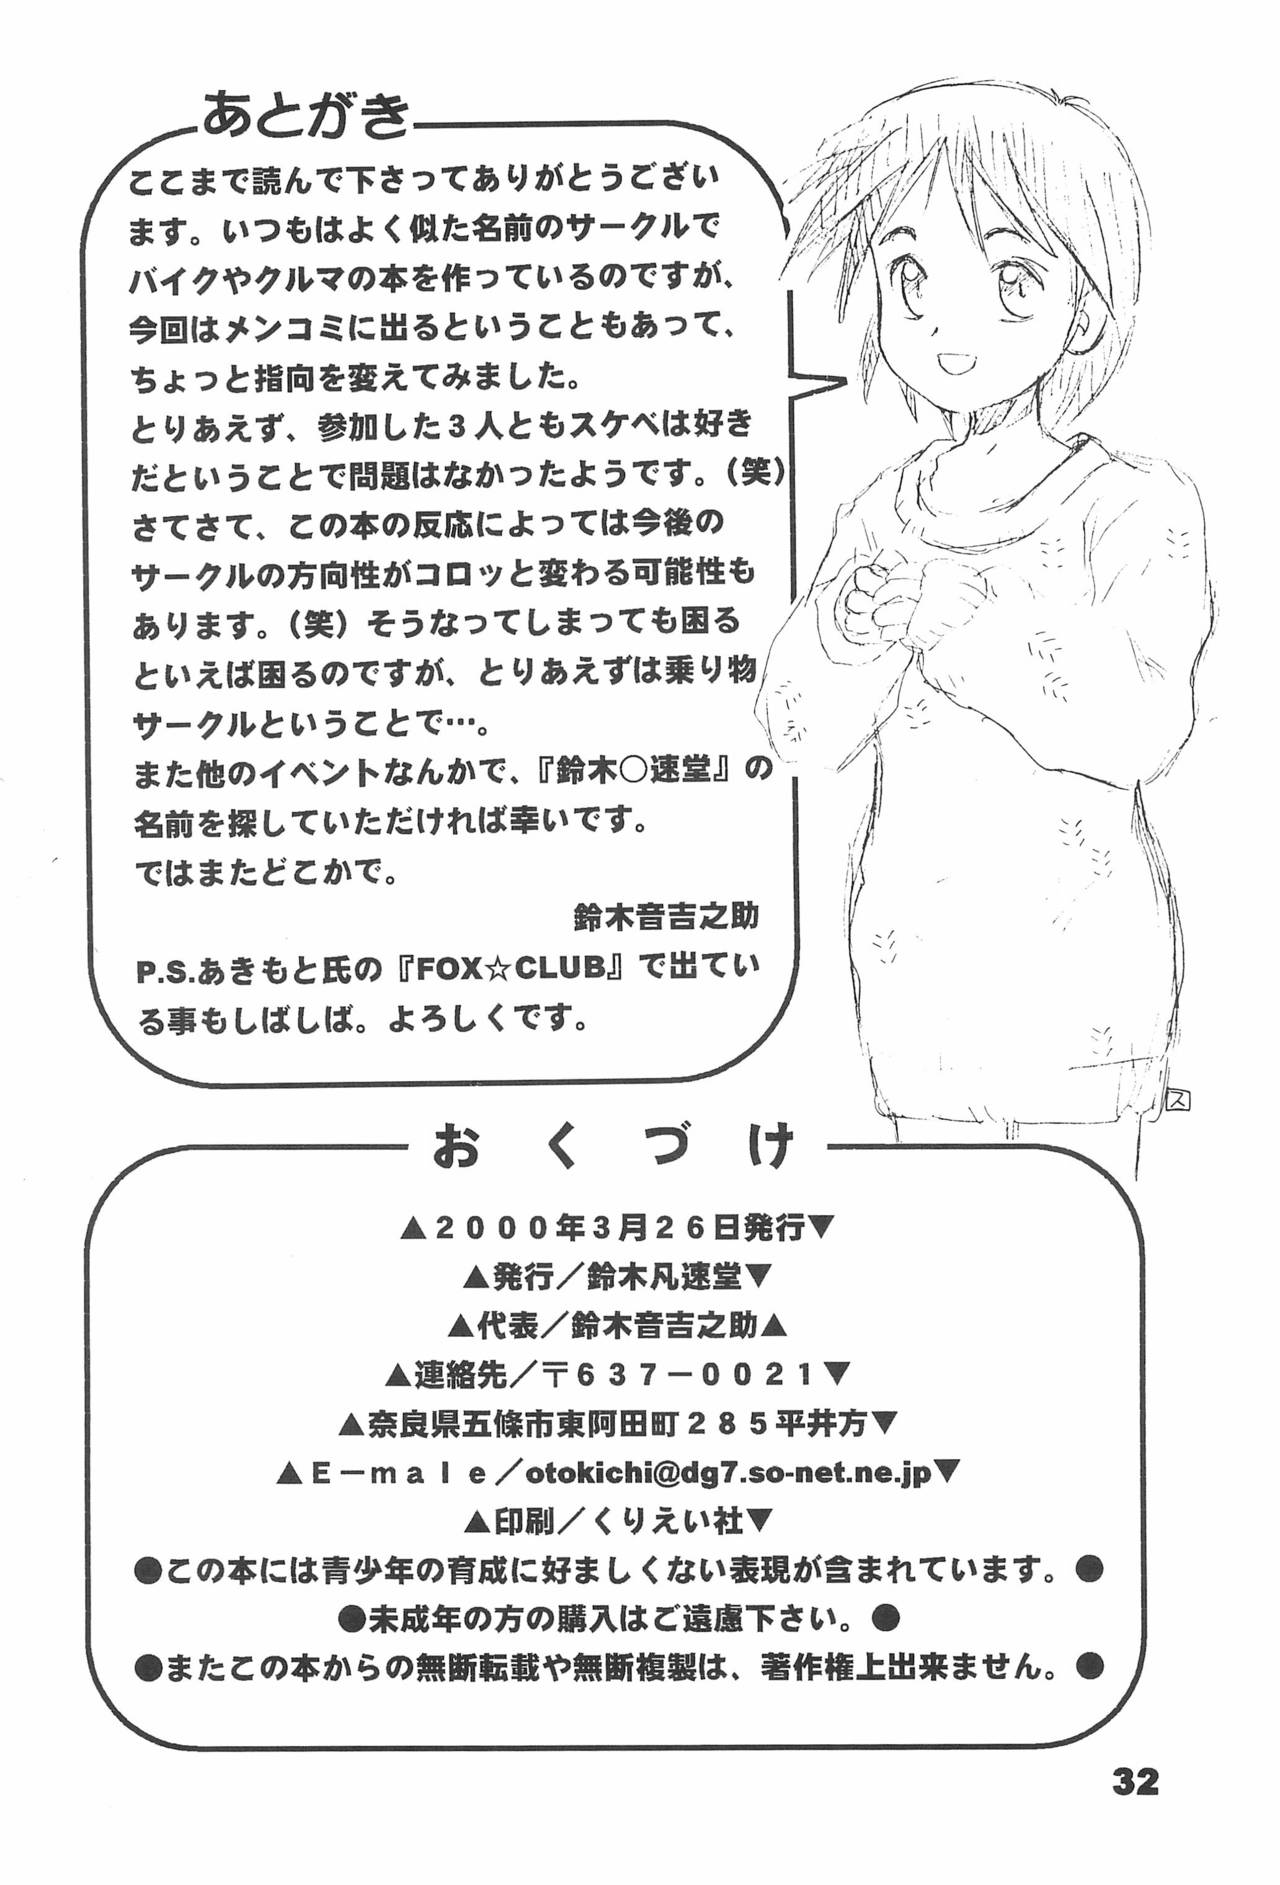 あとがき
ここまで読んで下さってありがとうござい
ます。いつもはよく似た名前のサークルで
バイクやクルマの本を作っているのですが、
今回はメンコミに出るということもあって、
ちょっと指向を変えてみました。
とりあえず、参加した３人ともスケベは好き
だということで問題はなかったようです。（笑）
さてさて、この本の反応によっては今後の
サークルの方向性がコロッと変わる可能性も
あります。（笑）そうなってしまっても困る
といえば困るのですが、とりあえずは乗り物
サークルということで…。
また他のイベントなんかで、『鈴木○速堂』の
名前を探していただければ幸いです。
ではまたどこかで。
鈴木音吉之助
P.S.あきもと氏の『FOX☆CLUB』で出てい
る事もしばしば。よろしくです。
ス
おくづけ
▲２０００年３月２６日発行▼
▲発行／鈴木凡速堂▼
▲代表／鈴木音吉之助▲
▲連絡先／〒６３７－００２１▼
▲奈良県五條市東阿田町２８５平井方▼
▲Ｅ－ｍａｌｅ／otokichi@dg7.so-net.ne.jp▼
▲印刷／くりえい社▼
●この本には青少年の育成に好ましくない表現が含まれています。●
●未成年の方の購入はご遠慮下さい。●
●またこの本からの無断転載や無断複製は、著作権上出来ません。●
32